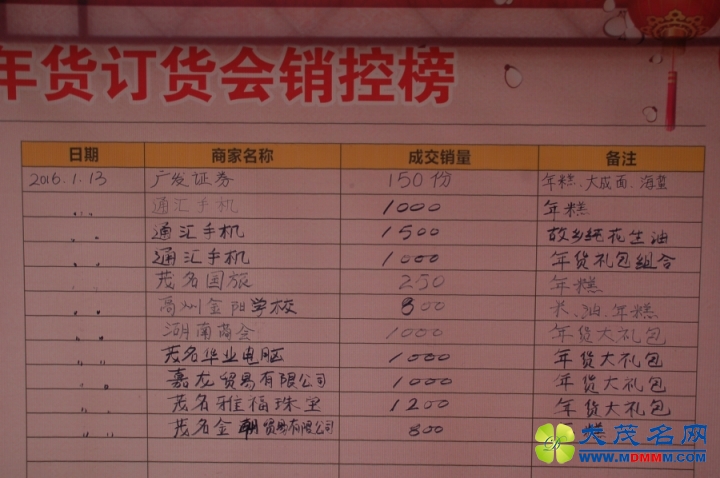 年货订货会销控榜
日期 商家名称 成交销量 备注
2016.1.13 广发证券 150份 年糕、大成面、海蓝
〃 通汇手机 1000 年糕
〃 通汇手机 1500 故乡纯花生油
〃 通汇手机 1000 年货礼包组合
〃 茂名国旅 250 年糕
〃 高州金阳学校 800 米、油、年糕
〃 湖南商会 1000 年货大礼包
〃 茂名华业电脑 1000 年货大礼包
〃 嘉龙贸易有限公司 1000 年货大礼包
〃 茂名雅福珠宝 1200 年货大礼包
〃 茂名金 贸易有限公司 800 糕
大茂名网
WWW.MDMMM.COM